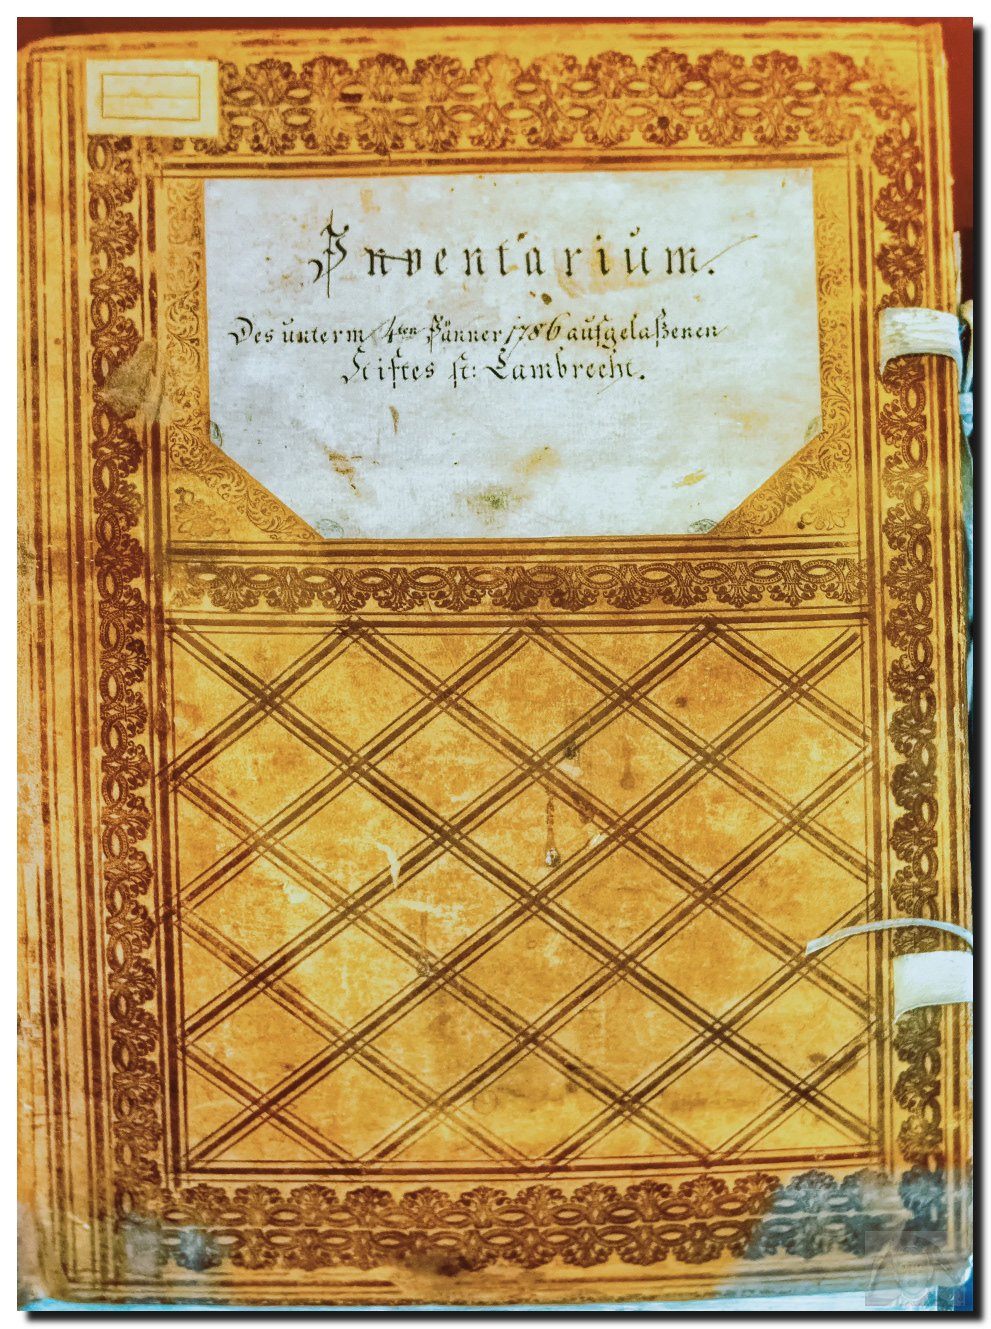 Inventarium.
Des unterm 4ten Jänner 1786 aufgelaßenen
Stiftes st: Lambrecht.